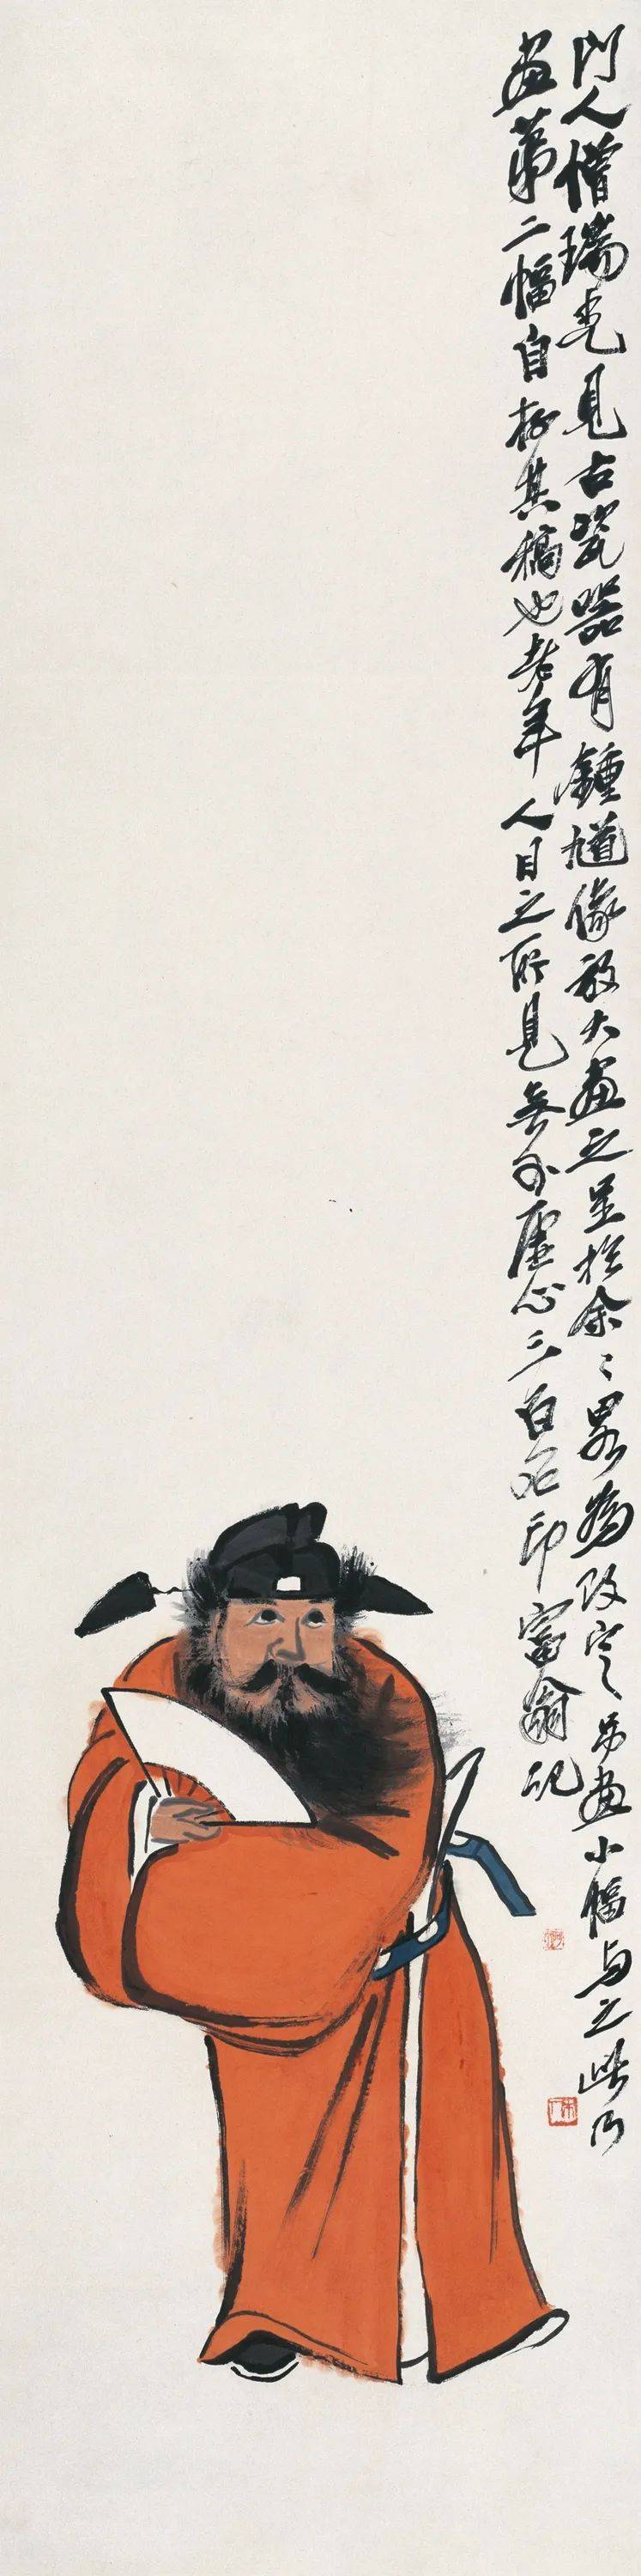 門人僧瑞光見古瓷器有鍾馗像放大畫之呈於余〻略為改定另畫小幅與之此乃
畫第二幅自存其稿也老年人目之所見無不虛心三百石印富翁記